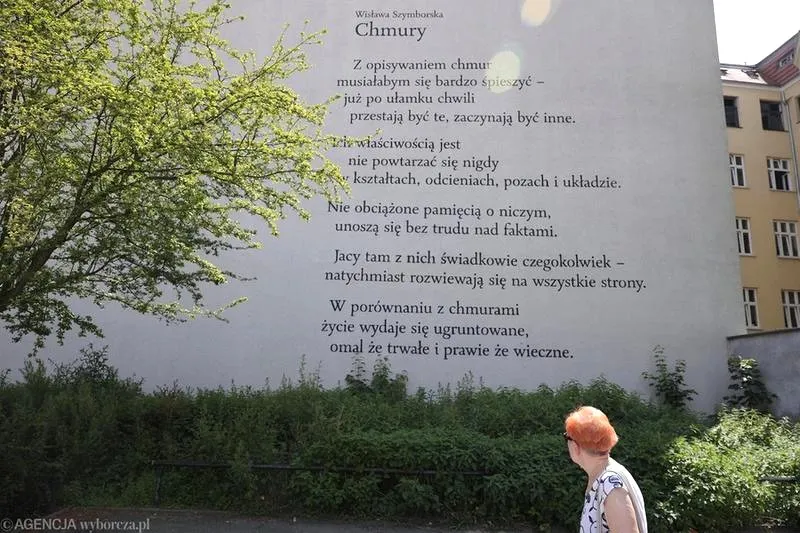 Wisława Szymborska
Chmury
Z opisywaniem chmur
musiałabym się bardzo śpieszyć –
już po ułamku chwili
przestają być te, zaczynają być inne.
Ich właściwością jest
nie powtarzać się nigdy
w kształtach, odcieniach, pozach i układzie.
Nie obciążone pamięcią o niczym,
unoszą się bez trudu nad faktami.
Jacy tam z nich świadkowie czegokolwiek –
natychmiast rozwiewają się na wszystkie strony.
W porównaniu z chmurami
życie wydaje się ugruntowane,
omal że trwałe i prawie że wieczne.
© AGENCJA wyborcza.pl